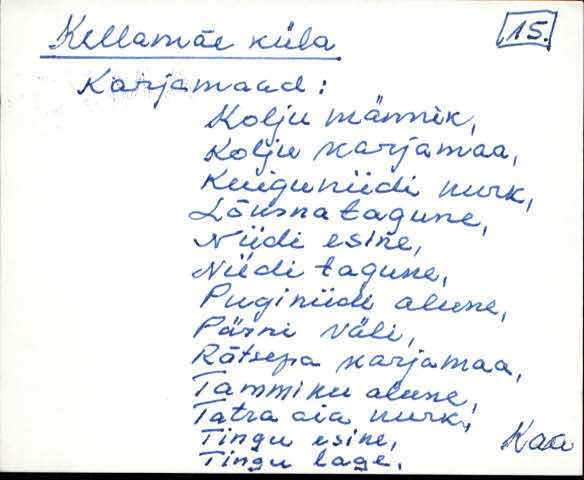 Kellamäe küla
15.
Karjamaad:
Kolju männik,
Kolju karjamaa,
Kuiguniidi nurk,
Lõusna tagune,
Niidi esine,
Niidi tagune,
Puginiidi alune,
Pärni väli,
Rätsepa karjamaa,
Tammiku alune,
Tatra aia nurk,
Tingu esine,
Tingu lage.
Kaa